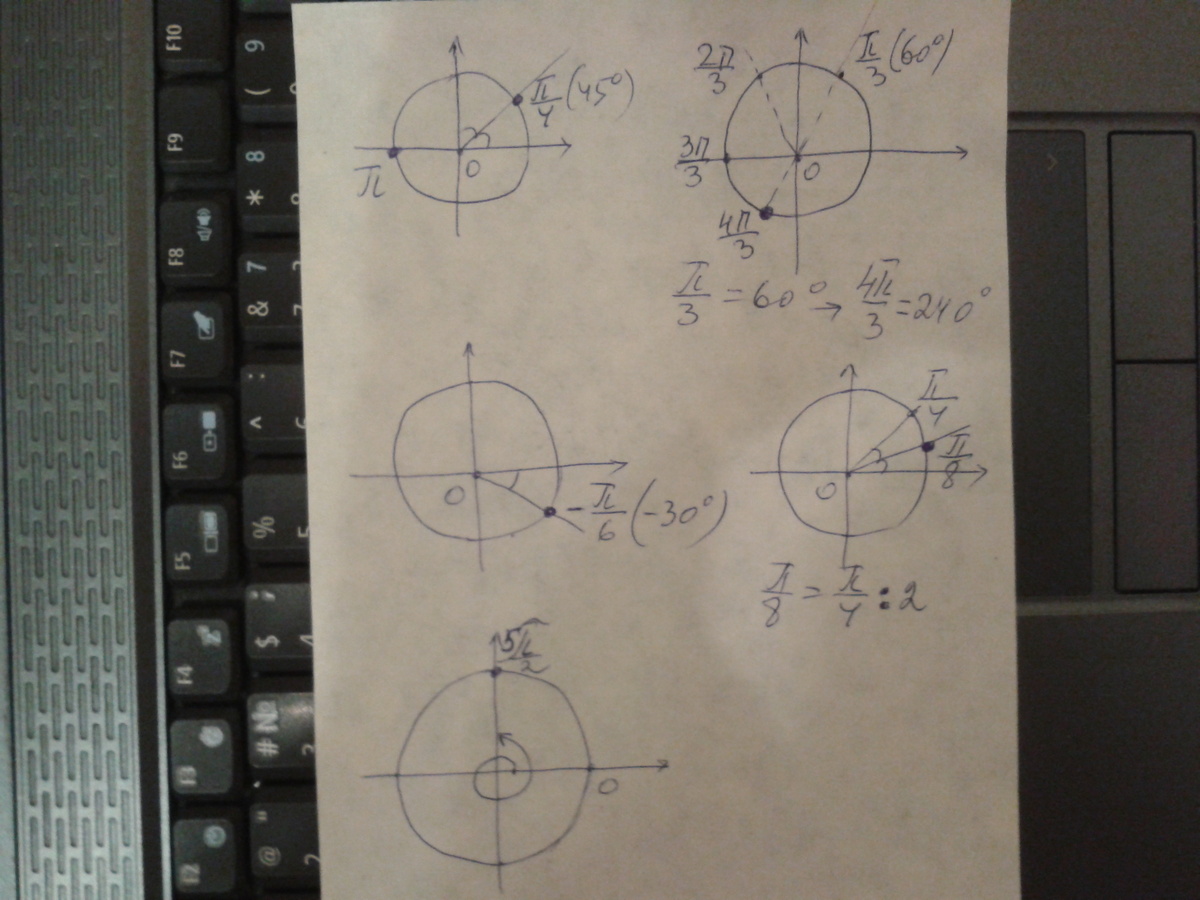 π/4 (45°)
π
O
2π/3
π/3 (60°)
3π/3
O
4π/3
π/3 = 60° → 4π/3 = 240°
O
-π/6 (-30°)
π/4
π/8
O
π/8 = π/4 : 2
5π/2
O
F10
F9
F8
F7
F6
F5
F4
F3
F2
( 9
* 8
& 7
^ : 6
% 5
$ ; 4
# № 3
@ " 2